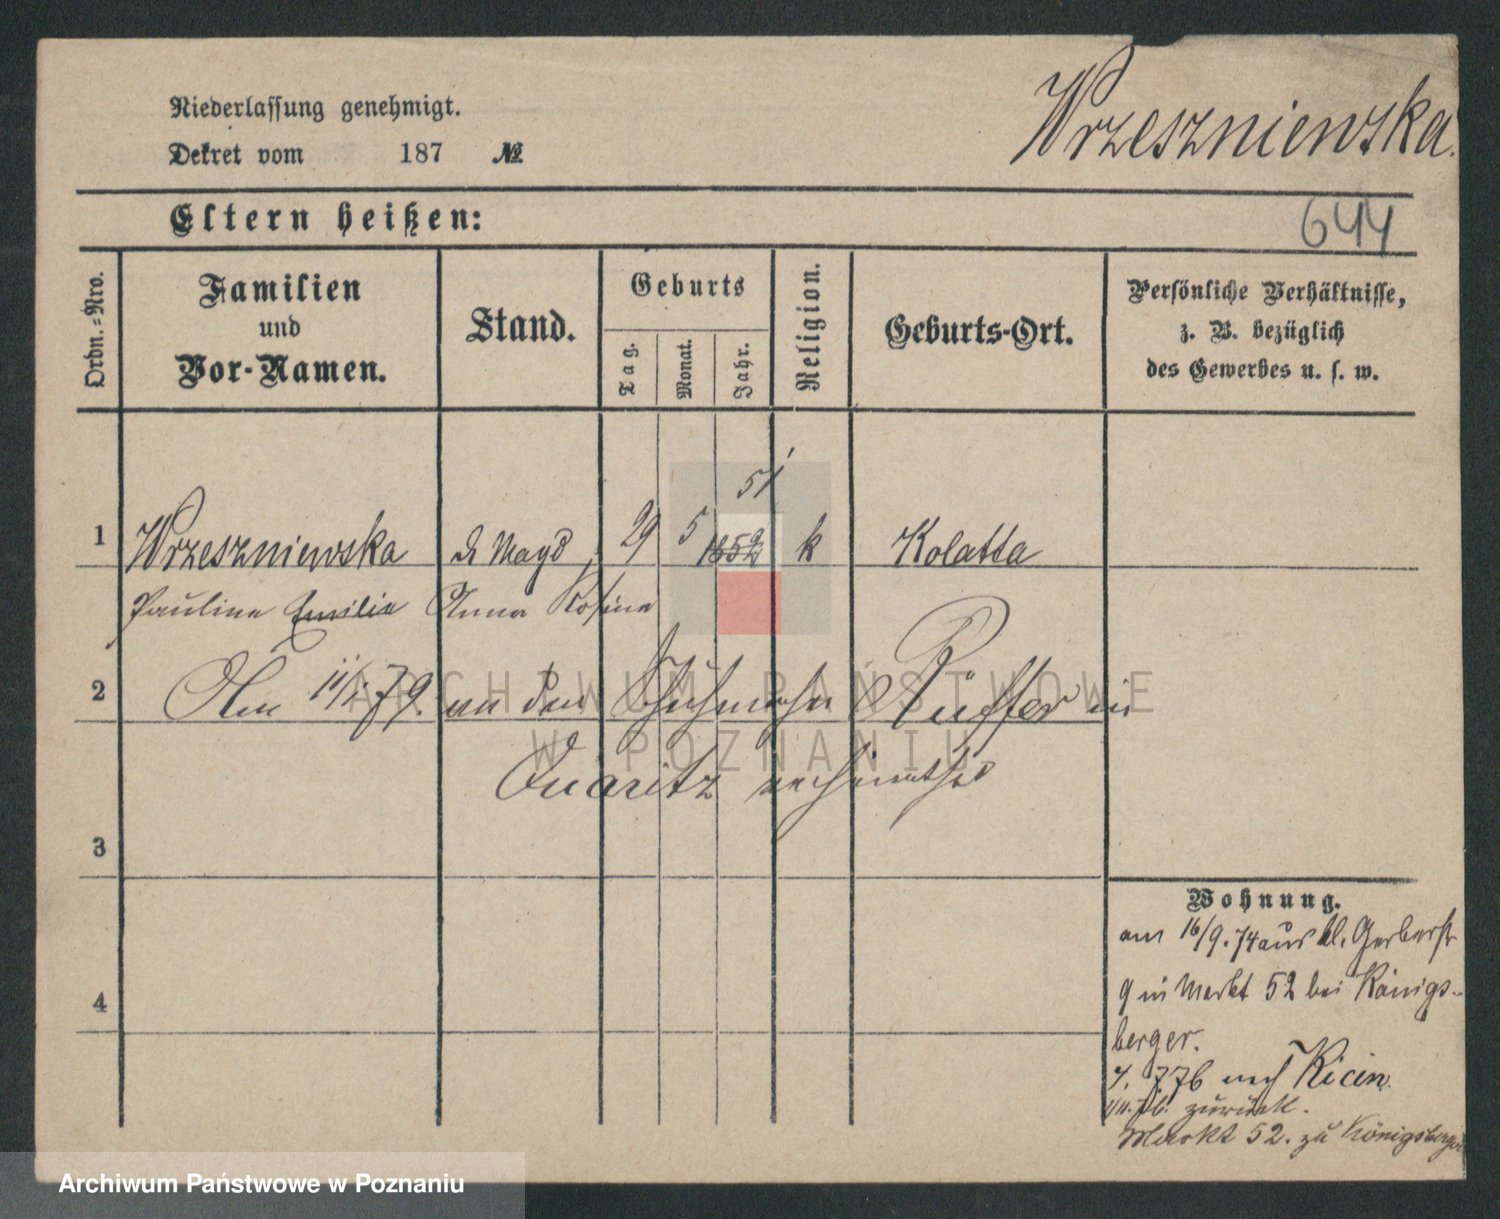 Niederlassung genehmigt.
Dekret vom 187 №
Wrzeszniewska.
Eltern heißen:
644
Ordn.-Nro.
Familien und Vor-Namen.
Stand.
Geburts
Tag.
Monat.
Jahr.
Religion.
Geburts-Ort.
Persönliche Verhältnisse,
z. B. bezüglich
des Gewerbes u. s. w.
51
1 Wrzeszniewska d. Magd, 29 5 1852 k Kolatta
Pauline Emilie Anna Rosine
2 Am 11/2 79. an den Schuhmacher Rüffer in
Quaritz verheirathet
3
4
Wohnung.
am 16/9. 74 aus kl. Gerberstr
9 in Markt 52 bei Königs-
berger.
4. 7. 76 nach Kicin.
zurück.
Markt 52. zu Königsberger
ARCHIWUM PAŃSTWOWE
W POZNANIU
Archiwum Państwowe w Poznaniu